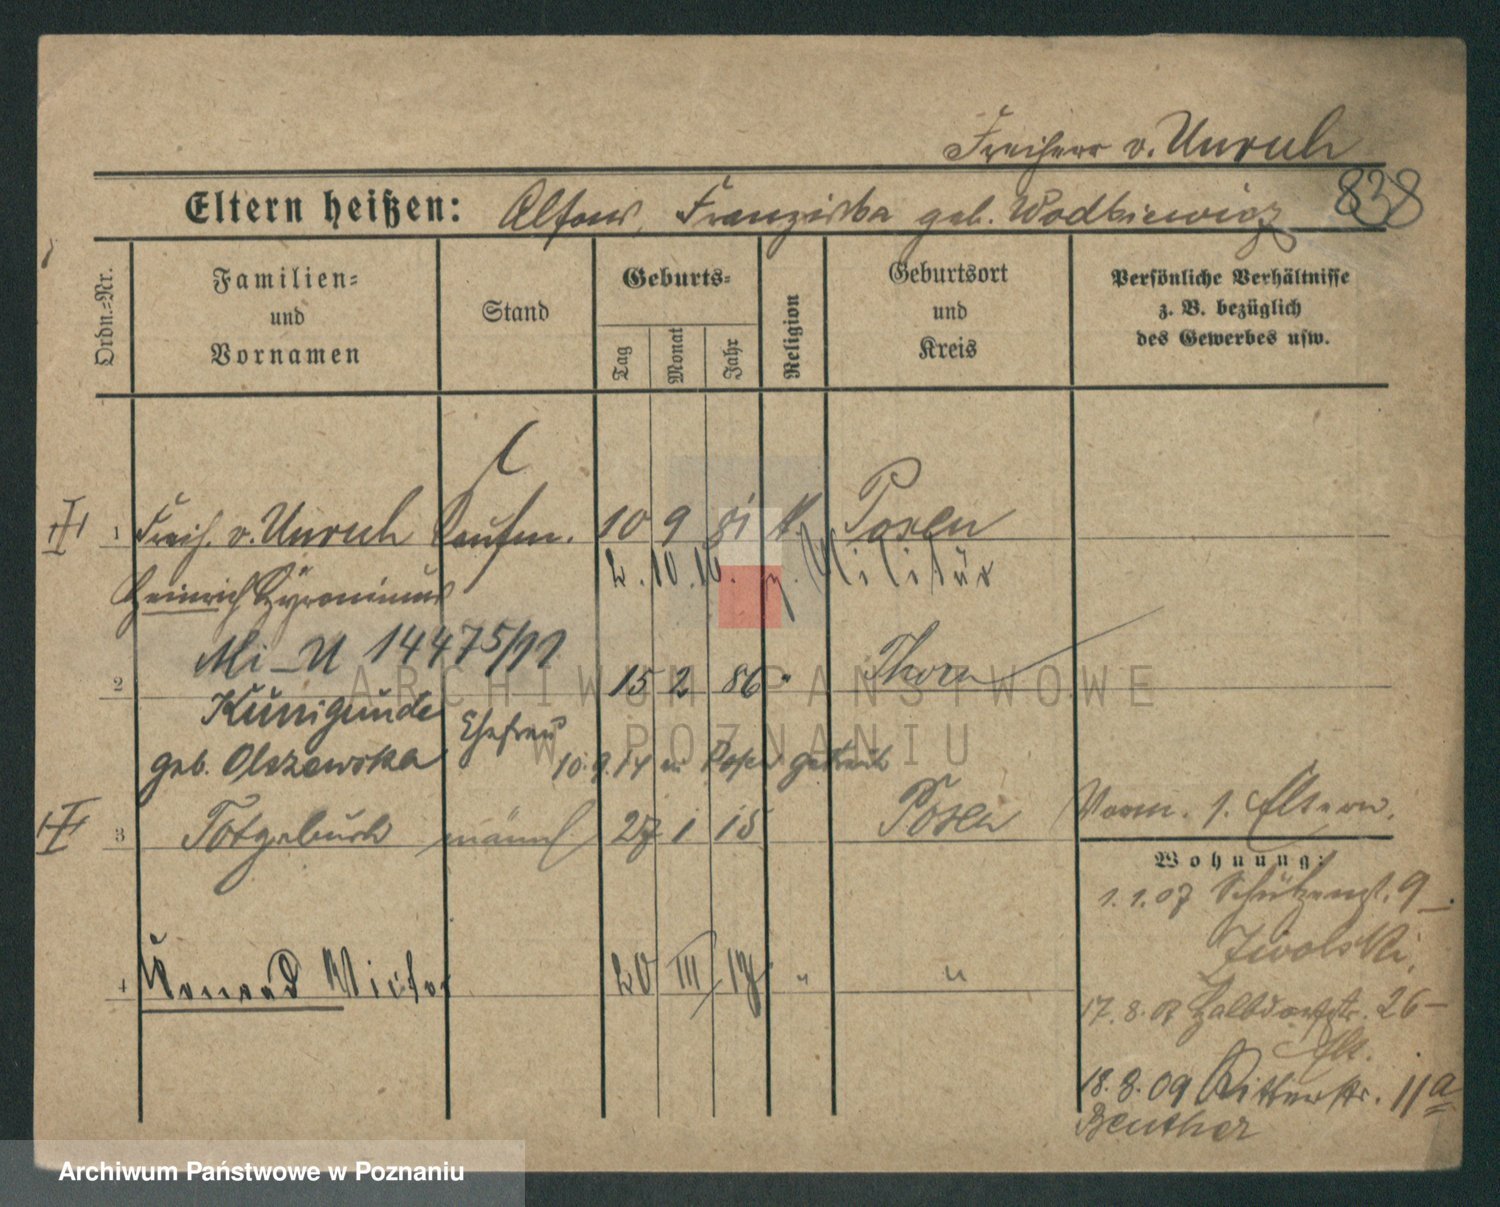 Freiherr v. Unruh
Eltern heißen: Alfons, Franziska geb. Wodkiewicz 838
Ordn.=Nr.
Familien= und Vornamen
Stand
Geburts=
Tag
Monat
Jahr
Religion
Geburtsort und Kreis
Persönliche Verhältnisse
z. B. bezüglich
des Gewerbes usw.
1 Freih. v. Unruh Kaufm. 10 9 81 k. Posen
2.10.16. z. Militär
Heinrich Hyronimus
Mi_U 14475/11
2 15 2 86 " Thorn
Kunigunde Ehefrau
geb. Olszewska 10.9.14 in Posen getraut
3 Totgeburt männl 27 1 15 Posen Vorm. s. Eltern.
Wohnung:
1.1.07 Schützenst. 9
Zwolski,
4 Konrad Victor 20 III 17 " "
17.8.07 Halbdorfstr. 26
18.8.09 Ritterstr. 11a
Beuther
ARCHIWUM PAŃSTWOWE
W POZNANIU
Archiwum Państwowe w Poznaniu